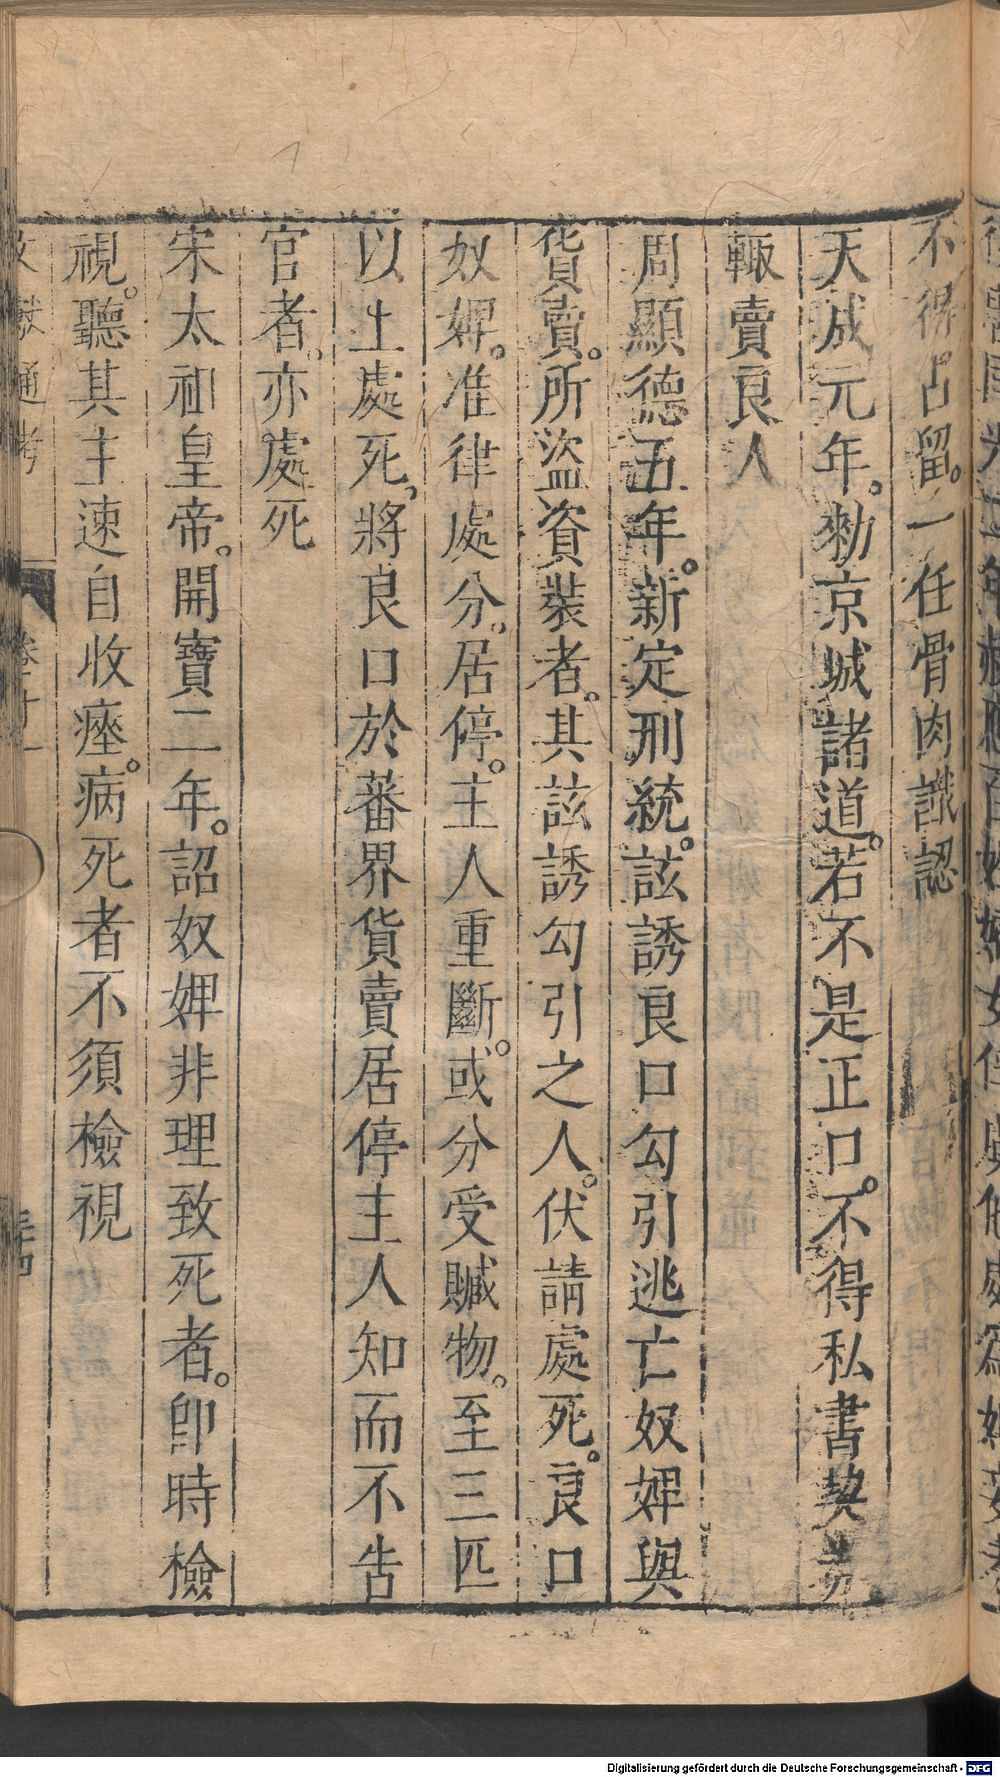 不得占留。一任骨肉識認
天成元年。勑京城諸道。若不是正口。不得私書契券
輙賣良人
周顯德五年。新定刑統。該誘良口勾引逃亡奴婢與
貨賣。所盜資裝者。其該誘勾引之人。伏請處死。良口
奴婢。准律處分。居停。主人重斷。或分受贓物。至三匹
以上處死。將良口於蕃界貨賣居停主人知而不告
官者。亦處死
宋太祖皇帝。開寶二年。詔奴婢非理致死者。卽時檢
視。聽其主速自收瘞。病死者不須檢視
通考
卷之十一
Digitalisierung gefördert durch die Deutsche Forschungsgemeinschaft - DFG